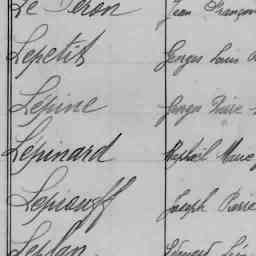 Le Péron Jean François
Lepetit Georges Louis
Lépine Georges Pierre
Lépinard Raphaël Marie
Lepiouff Joseph Pierre
Leplan Léonard